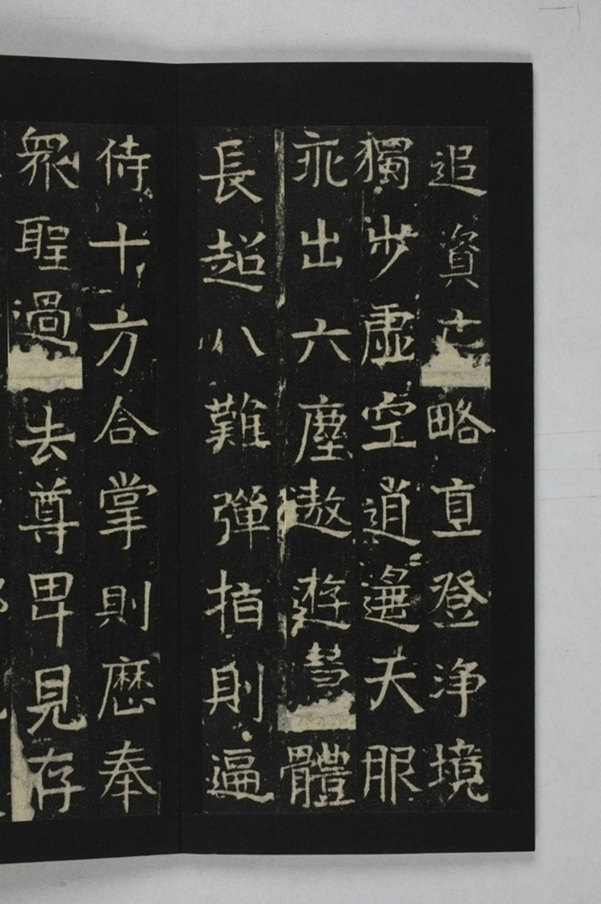 追資亡略直登净境
獨步虛空逍遥天服
乖出六塵遨遊體
長超八難彈指則遍
侍十方合掌則歷奉
眾聖過去尊卑見存